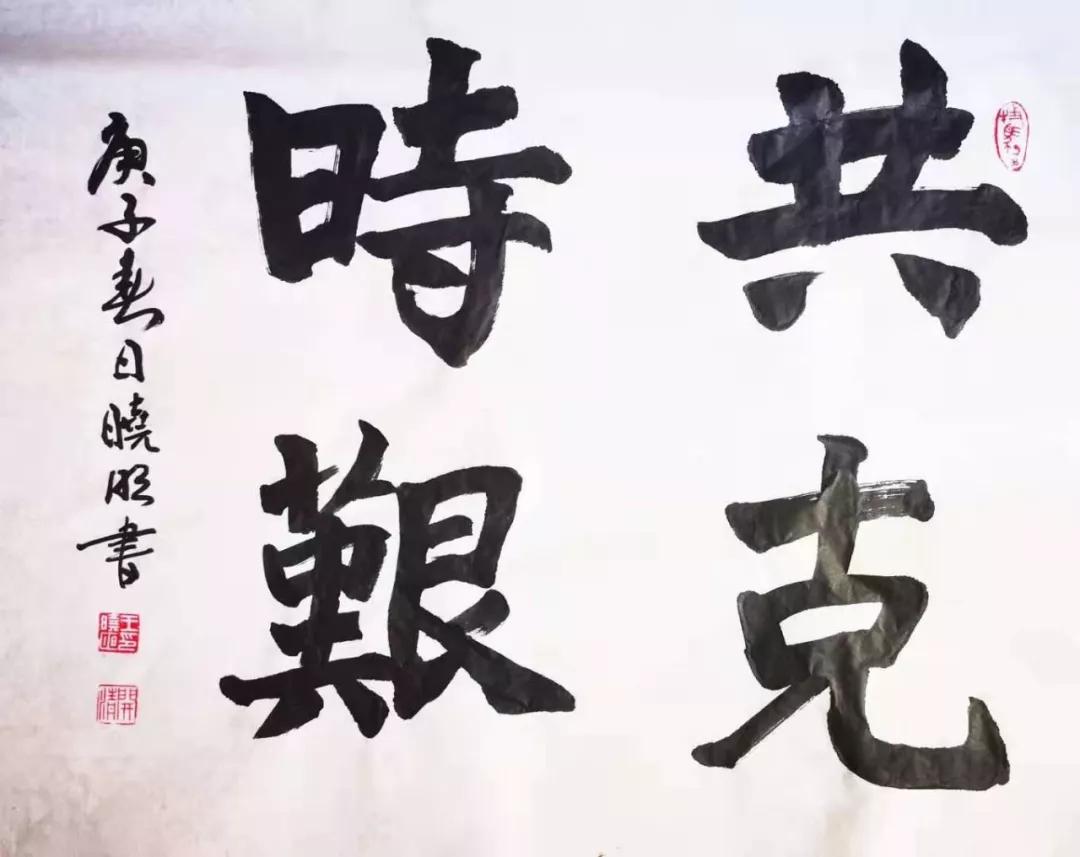 共克
時艱
庚子春日曉明書